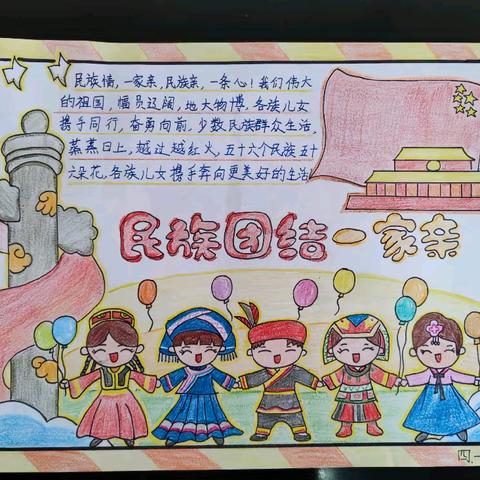 民族情，一家亲，民族亲，一条心！我们伟大
的祖国，幅员辽阔，地大物博，各族儿女
携手同行，奋勇向前，少数民族群众生活，
蒸蒸日上，越过越红火，五十六个民族五十
六朵花，各族儿女携手奔向更美好的生活
民族团结一家亲
四.一